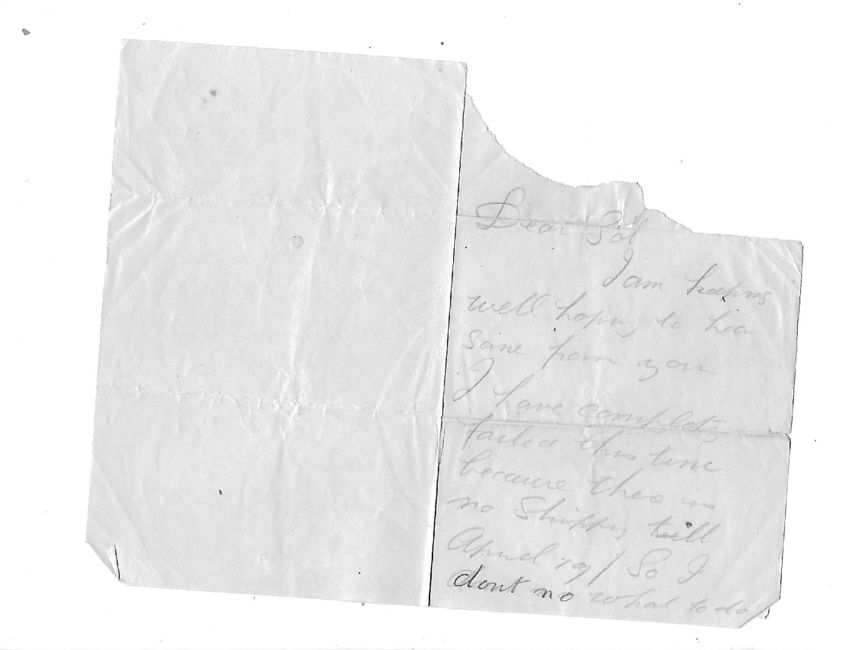 Dear Sol
I am keeping
well hoping to hea
same from you
I have completly
failed this time
because thee is
no Shipping till
April 19/ So I
dont no what to do